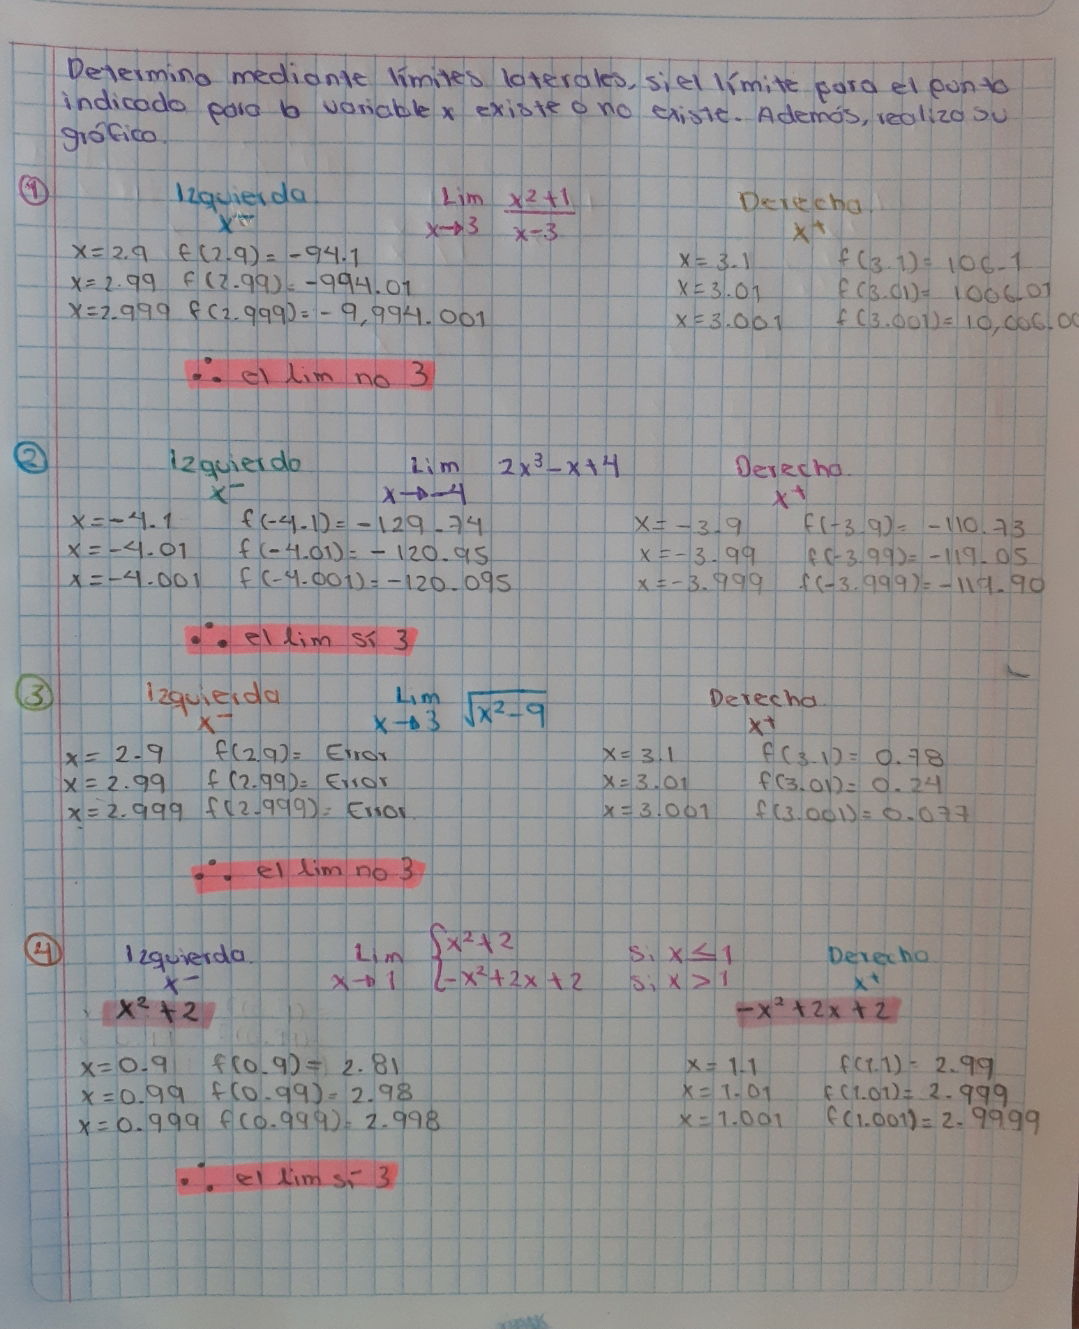 Determino mediante límites laterales, si el límite para el punto
indicado para la variable x existe o no existe. Además, realizo su
gráfico.
1
Izquierda Lim x²+1 Derecha
x⁻ x→3 x-3 x⁺
x=2.9 f(2.9)= -94.1 x=3.1 f(3.1)= 106.1
x=2.99 f(2.99)= -994.01 x=3.01 f(3.01)= 1006.01
x=2.999 f(2.999)= -9,994.001 x=3.001 f(3.001)=10,006.00
∴ el lim no 3
2
Izquierdo Lim 2x³-x+4 Derecha
x⁻ x→-4 x⁺
x=-4.1 f(-4.1)= -129.74 x=-3.9 f(-3.9)= -110.73
x=-4.01 f(-4.01)= -120.95 x=-3.99 f(-3.99)= -119.05
x=-4.001 f(-4.001)= -120.095 x=-3.999 f(-3.999)= -119.90
∴ el lim sí 3
3
Izquierda Lim √x²-9 Derecha
x⁻ x→3 x⁺
x= 2.9 f(2.9)= Error x=3.1 f(3.1)= 0.78
x=2.99 f(2.99)= Error x=3.01 f(3.01)= 0.24
x=2.999 f(2.999)= Error x=3.001 f(3.001)= 0.077
∴ el lim no 3
4
Izquierda. Lim { x²+2 si x≤1 Derecha
x⁻ x→1 -x²+2x+2 si x>1 x⁺
x²+2 -x²+2x+2
x=0.9 f(0.9)= 2.81 x=1.1 f(1.1)= 2.99
x=0.99 f(0.99)= 2.98 x=1.01 f(1.01)= 2.999
x=0.999 f(0.999)= 2.998 x=1.001 f(1.001)= 2.9999
∴ el lim sí 3